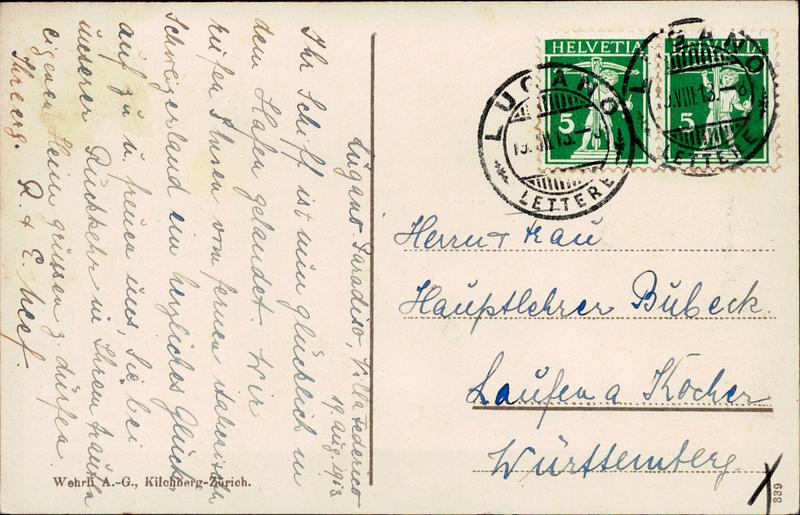 Lugano-Paradiso, Villa Federico
19. Aug. 1913
Ihr Schiff ist nun glücklich in
dem Hafen gelandet. Wir
rufen Ihnen vom fernen italienisch
Schweizerland ein herzliches Glück
auf zu u. freuen uns, Sie bei
unserer Rückkehr in Ihrem
eigenen Heim grüssen z. dürfen.
Ihre erg.
R. & E. Neef.
Wehrli A.-G., Kilchberg-Zürich.
HELVETIA
5
HELVETIA
5
LUGANO
LETTERE
LUGANO
LETTERE
Herrn + Frau
Hauptlehrer Bubeck.
Laufen a Kocher
Württemberg.
839